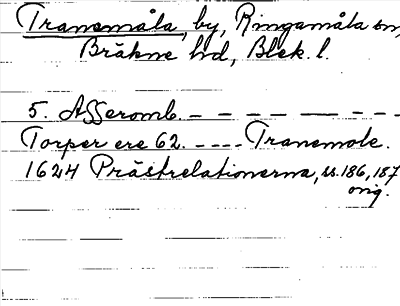 Tranemåla, by, Ringamåla sn,
Bräkne hd, Blek. l.
5. Afseromb. – – – – – – –
Torper ere 62. ---- Tranemole.
1624 Prästrelationerna, ss. 186, 187
orig.